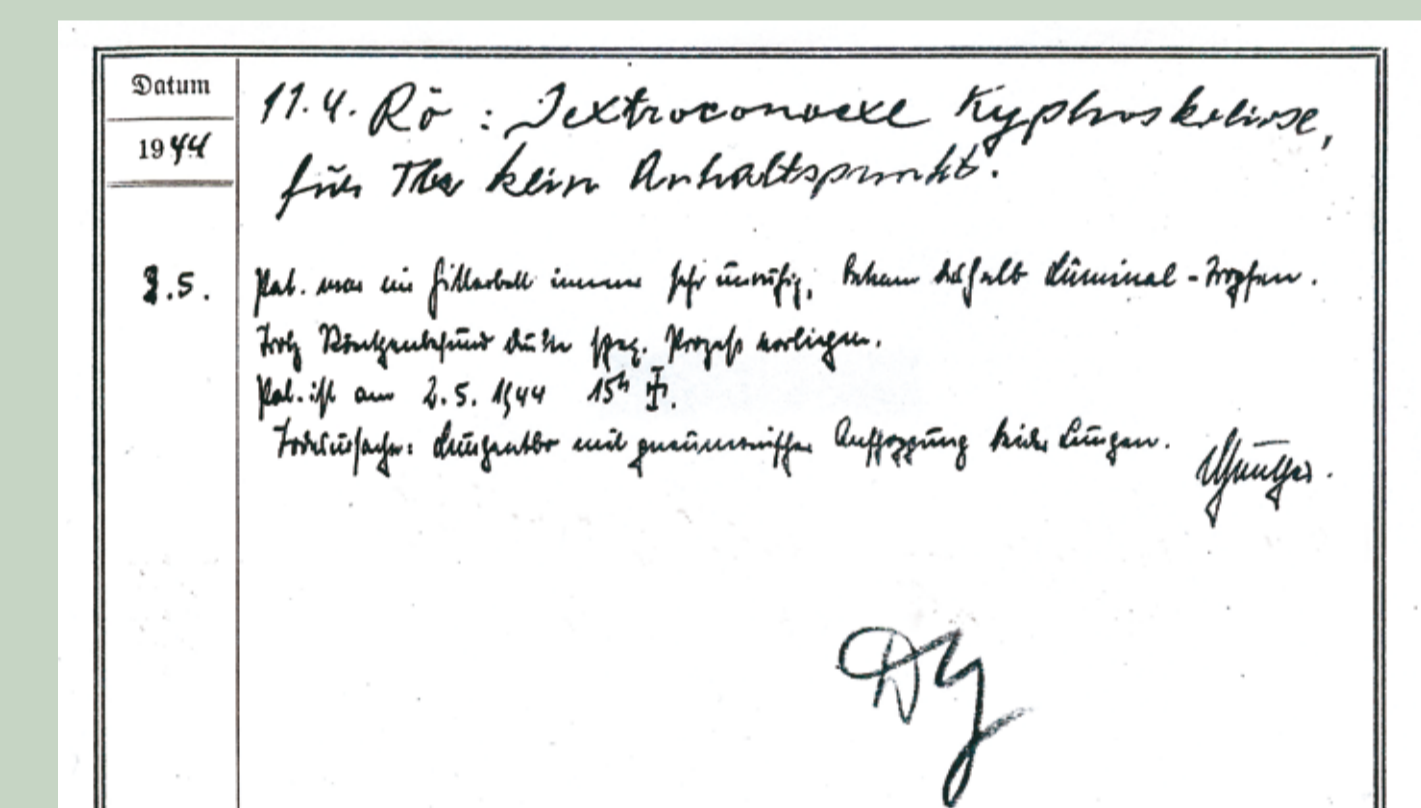 Datum
1944
11.4. Rö: Dextroconvexe Kyphoskoliose,
für Tbc kein Anhaltspunkt.
2.5.
Pat. war im Gitterbett immer sehr unruhig, bekam deshalb Luminal-Tropfen.
Trotz Röntgenbefund dürfte spez. Prozess vorliegen.
Pat. ist am 2.5.1944 15h
Todesursache: Lungentbc mit pneumonischer beider Lungen.